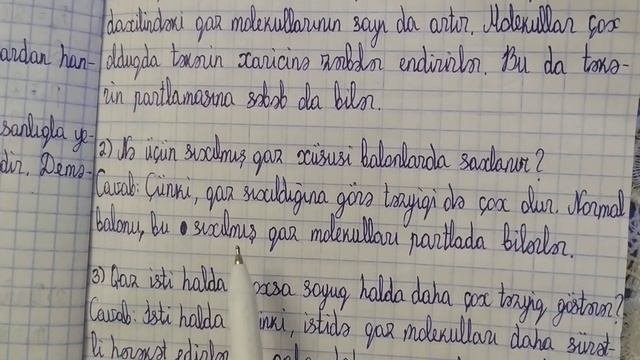 daxilindəki qaz molekullarının sayı da artır. Molekullar çox
ardan han- olduqda təkərin xaricinə zərbələr endirirlər. Bu da təkə-
rin partlamasına səbəb ola bilər.
sanlıqla ye- 2) Nə üçün sıxılmış qaz xüsusi balonlarda saxlanır?
dir. Demə- Cavab: Çünki, qaz sıxıldığına görə təzyiqi də çox olur. Normal
balonu, bu sıxılmış qaz molekulları partlada bilərlər.
3) Qaz isti halda yoxsa soyuq halda daha çox təzyiq göstərər?
Cavab: İsti halda çünki, istidə qaz molekulları daha sürət-
li hərəkət edirlər